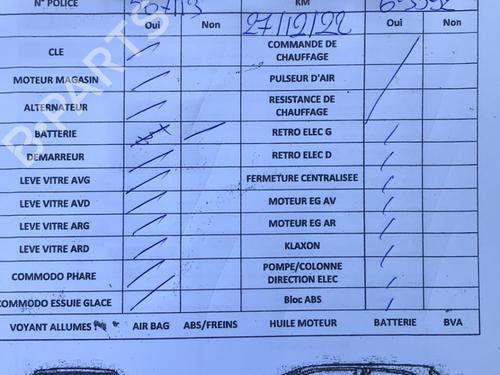 N° POLICE KM
Oui Non 27/12/22 Oui Non
CLE COMMANDE DE CHAUFFAGE
MOTEUR MAGASIN PULSEUR D'AIR
ALTERNATEUR RESISTANCE DE CHAUFFAGE
BATTERIE RETRO ELEC G
DEMARREUR RETRO ELEC D
LEVE VITRE AVG FERMETURE CENTRALISEE
LEVE VITRE AVD MOTEUR EG AV
LEVE VITRE ARG MOTEUR EG AR
LEVE VITRE ARD KLAXON
COMMODO PHARE POMPE/COLONNE DIRECTION ELEC
COMMODO ESSUIE GLACE Bloc ABS
VOYANT ALLUMES AIR BAG ABS/FREINS HUILE MOTEUR BATTERIE BVA
B-PARTS